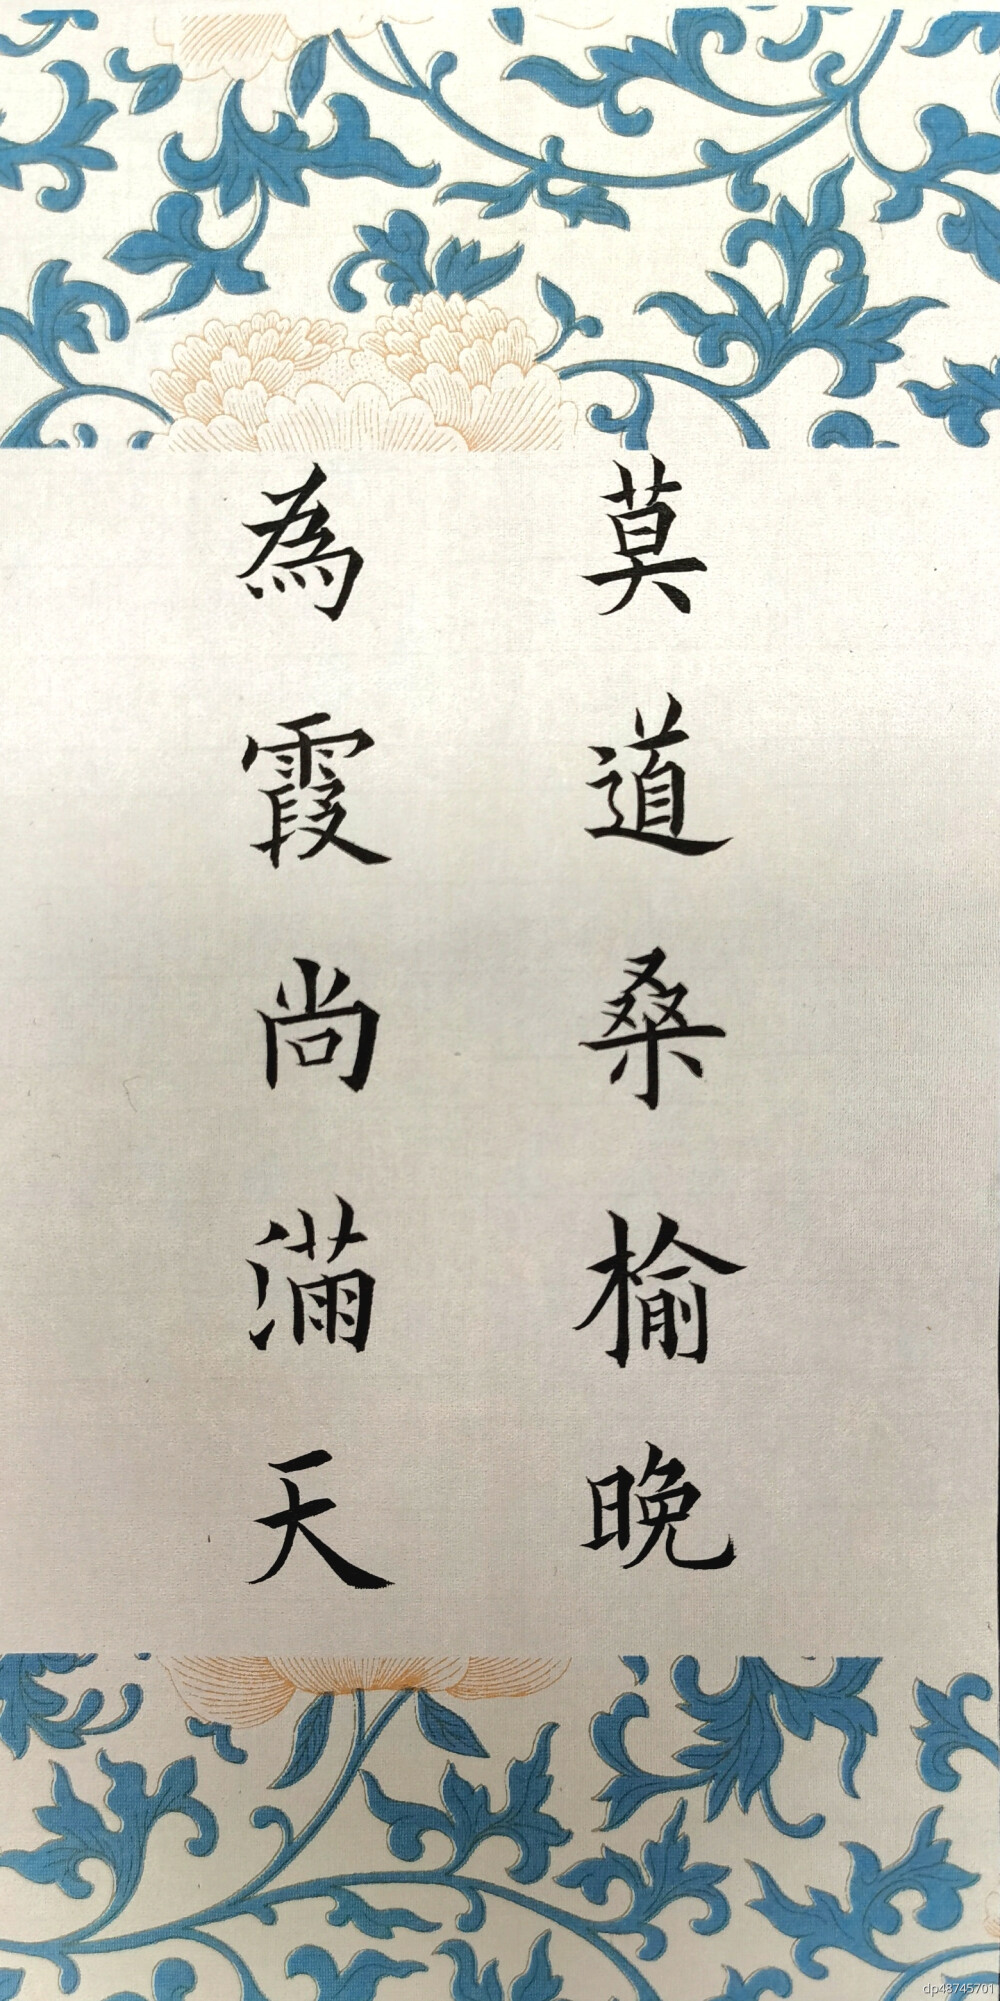 莫道桑榆晚
為霞尚滿天
dp48745701